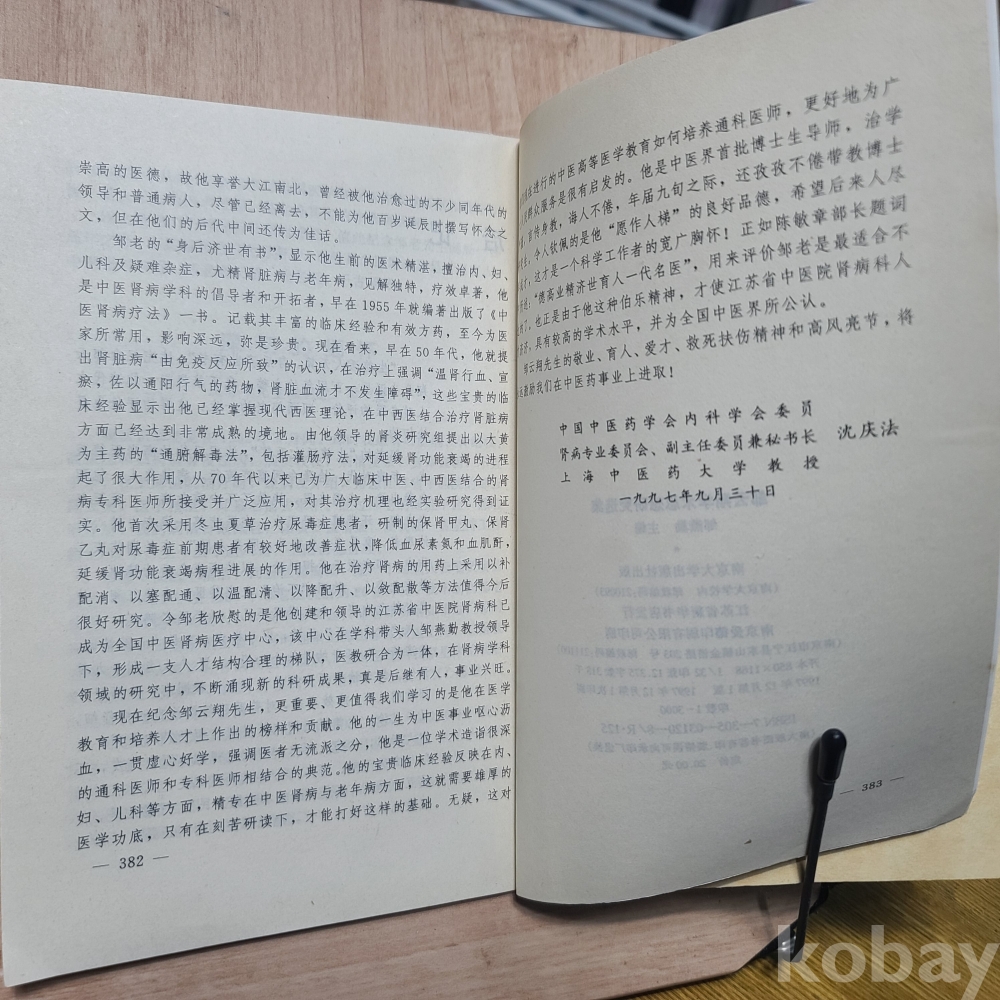 崇高的医德，故他享誉大江南北，曾经被他治愈过的不少同年代的
领导和普通病人，尽管已经离去，不能为他百岁诞辰时撰写怀念之
文，但在他们的后代中间还传为佳话。
邹老的“身后济世有书”，显示他生前的医术精湛，擅治内、妇、
儿科及疑难杂症，尤精肾脏病与老年病，见解独特，疗效卓著，他
是中医肾病学科的倡导者和开拓者，早在1955年就编著出版了《中
医肾病疗法》一书。记载其丰富的临床经验和有效方药，至今为医
家所常用，影响深远，弥是珍贵。现在看来，早在50年代，他就提
出肾脏病“由免疫反应所致”的认识，在治疗上强调“温肾行血、宣
瘀，佐以通阳行气的药物，肾脏血流才不发生障碍”，这些宝贵的临
床经验显示出他已经掌握现代西医理论，在中西医结合治疗肾脏病
方面已经达到非常成熟的境地。由他领导的肾炎研究组提出以大黄
为主药的“通腑解毒法”，包括灌肠疗法，对延缓肾功能衰竭的进程
起了很大作用，从70年代以来已为广大临床中医、中西医结合的肾
病专科医师所接受并广泛应用，对其治疗机理也经实验研究得到证
实。他首次采用冬虫夏草治疗尿毒症患者，研制的保肾甲丸、保肾
乙丸对尿毒症前期患者有较好地改善症状，降低血尿素氮和血肌酐，
延缓肾功能衰竭病程进展的作用。他在治疗肾病的用药上采用以补
配消、以塞配通、以温配清、以降配升、以敛配散等方法值得今后
很好研究。令邹老欣慰的是他创建和领导的江苏省中医院肾病科已
成为全国中医肾病医疗中心，该中心在学科带头人邹燕勤教授领导
下，形成一支人才结构合理的梯队，医教研合为一体，在肾病学科
领域的研究中，不断涌现新的科研成果，真是后继有人，事业兴旺。
现在纪念邹云翔先生，更重要、更值得我们学习的是他在医学
教育和培养人才上作出的榜样和贡献。他的一生为中医事业呕心沥
血，一贯虚心好学，强调医者无流派之分，他是一位学术造诣很深
的通科医师和专科医师相结合的典范。他的宝贵临床经验反映在内、
妇、儿科等方面，精专在中医肾病与老年病方面，这就需要雄厚的
医学功底，只有在刻苦研读下，才能打好这样的基础。无疑，这对
— 382 —
进行的中医高等医学教育如何培养通科医师，更好地为广
群众服务是很有启发的。他是中医界首批博士生导师，治学
言传身教，诲人不倦，年届九旬之际，还孜孜不倦带教博士
，令人钦佩的是他“愿作人梯”的良好品德，希望后来人尽
，这才是一个科学工作者的宽广胸怀！正如陈敏章部长题词
“德高业精济世育人一代名医”，用来评价邹老是最适合不
了，也正是由于他这种伯乐精神，才使江苏省中医院肾病科人
，具有较高的学术水平，并为全国中医界所公认。
邹云翔先生的敬业、育人、爱才、救死扶伤精神和高风亮节，将
激励我们在中医药事业上进取！
中国中医药学会内科学会委员
肾病专业委员会、副主任委员兼秘书长 沈庆法
上海中医药大学教授
一九九七年九月三十日
— 383 —
kobay